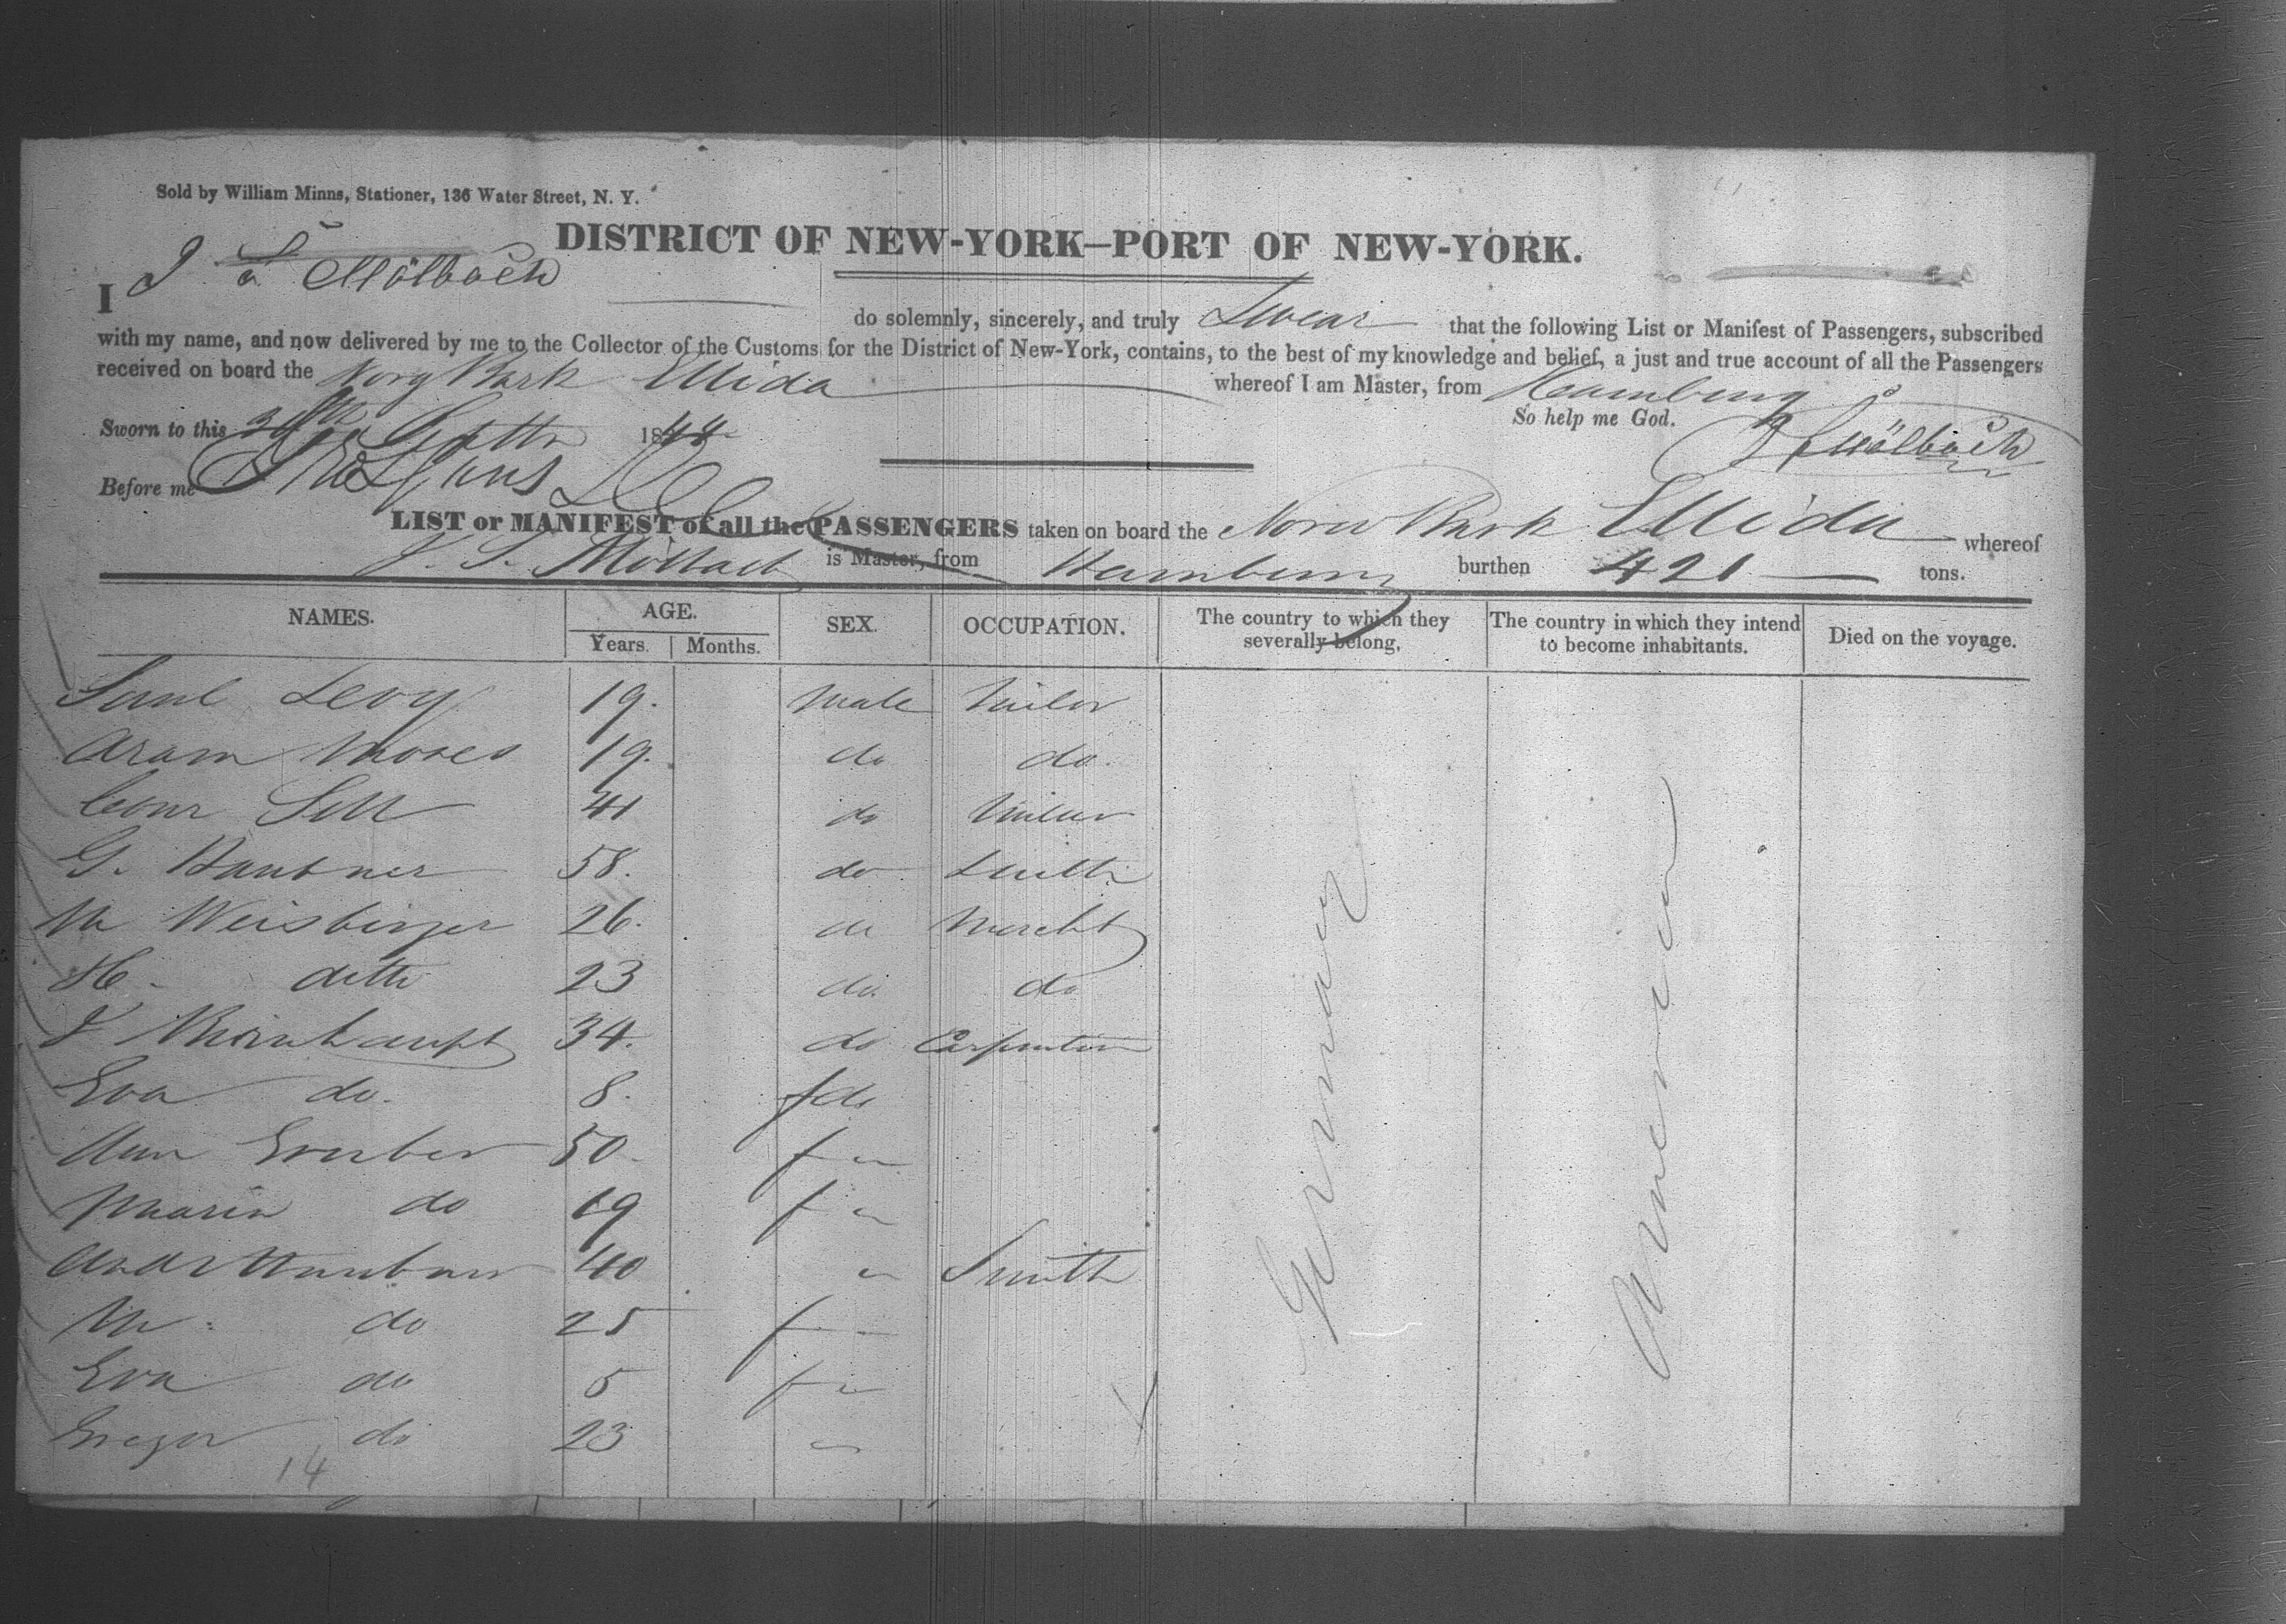 Sold by William Minns, Stationer, 136 Water Street, N. Y.
DISTRICT OF NEW-YORK—PORT OF NEW-YORK.
I J Mölbach
do solemnly, sincerely, and truly Swear that the following List or Manifest of Passengers, subscribed
with my name, and now delivered by me to the Collector of the Customs for the District of New-York, contains, to the best of my knowledge and belief, a just and true account of all the Passengers
received on board the Norg Bark Ellida whereof I am Master, from Hamburg
So help me God.
Sworn to this Septbr 1844
Mölbach
Before me
LIST or MANIFEST of all the PASSENGERS taken on board the Norw Bark Ellida whereof
J. S. Molbach is Master, from Hamburg burthen 421 tons.
NAMES. AGE. SEX. OCCUPATION. The country to which they severally belong, The country in which they intend to become inhabitants. Died on the voyage.
Years. Months.
Levy 19. Male
Aram Moses 19. do do.
41 do
G. Haubner 58. do Smith
M Weisberger 26. do Marcht
H. ditto 23 do. do
J 34. do Carpenter
Eva do. 8. f do
Ann 50 f
Maria do 19 f
40 Smith
M. do 25 f
Eva do 5 f
Gregor do 23
Germany
America
14